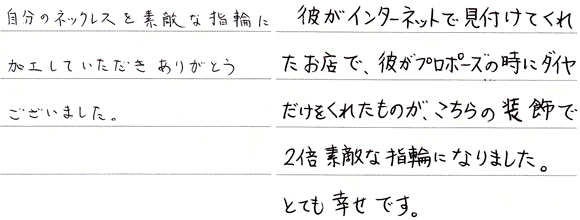 自分のネックレスを素敵な指輪に
加工していただきありがとう
ございました。
彼がインターネットで見付けてくれ
たお店で、彼がプロポーズの時にダイヤ
だけをくれたものが、こちらの装飾で
2倍素敵な指輪になりました。
とても幸せです。